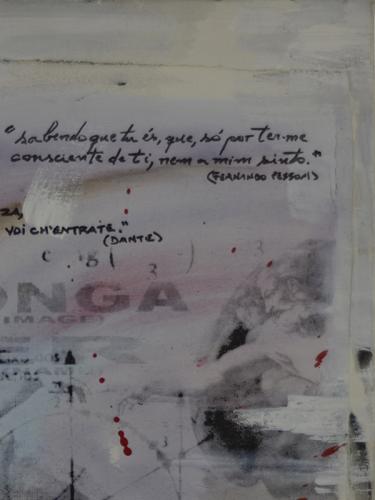 "sabendo que tu és, que, só por ter-me
consciente de ti, nem a mim sinto."
(FERNANDO PESSOA)
ZA,
VOI CH'ENTRATE."
(DANTE)
c g(
3
3
ONGA
(IMAGE)